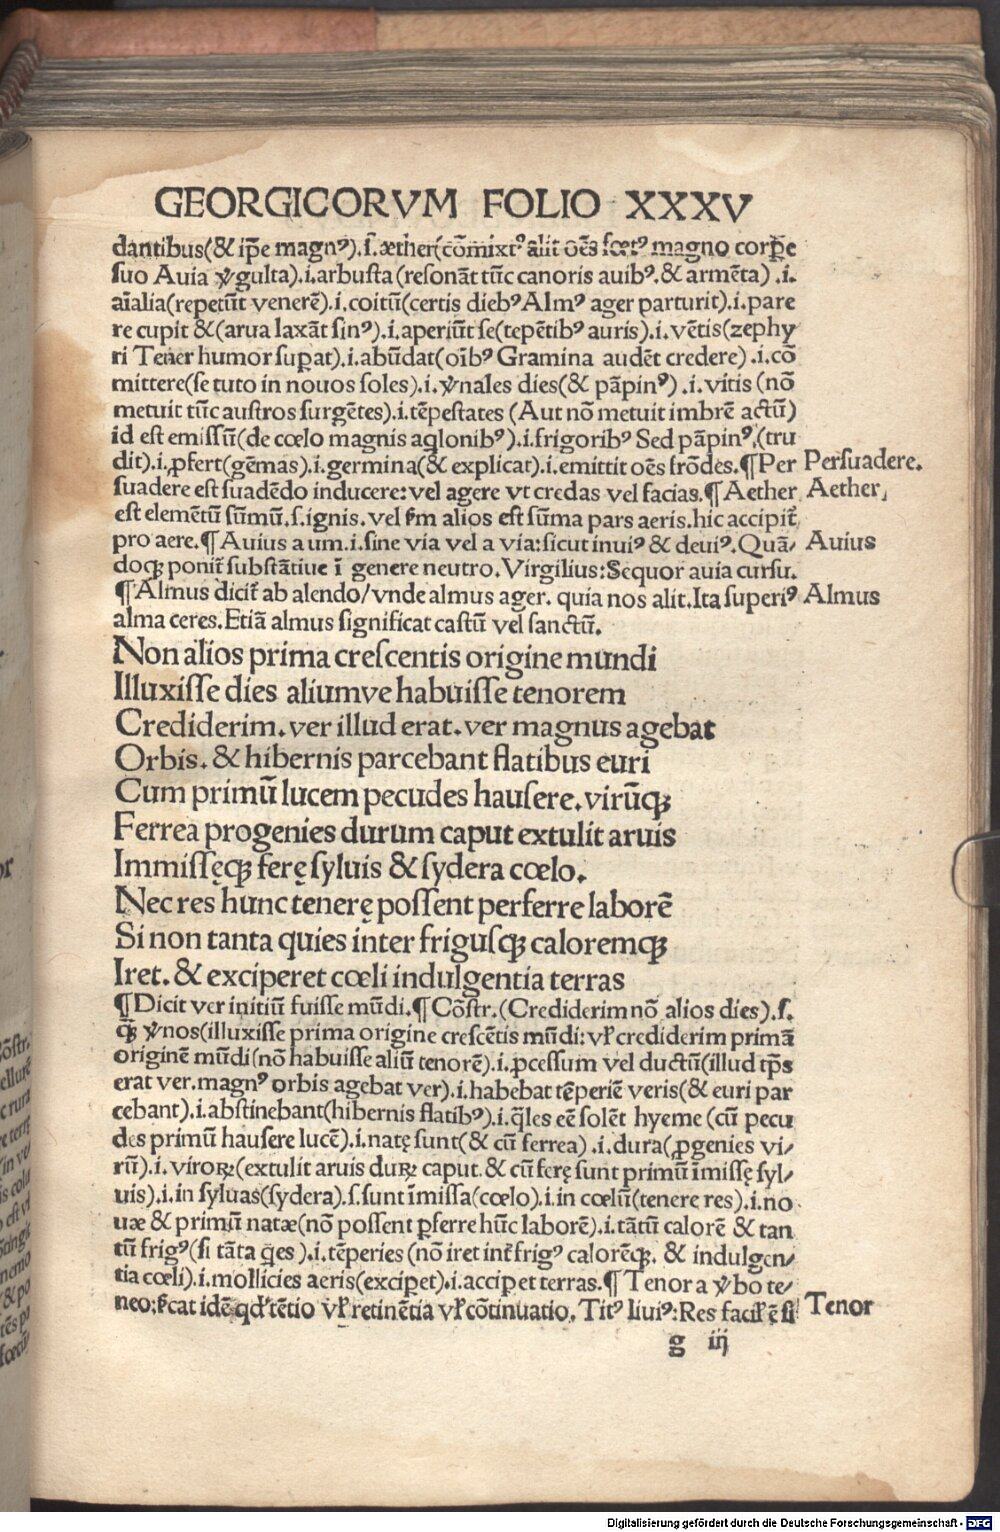 GEORGICORVM FOLIO XXXV
dantibus(& ip̄e magnꝰ).ſ. æther(cōmixtꝰ alit oēs fœtꝰ magno corꝑe
ſuo Auia v̓gulta).i.arbuſta(reſonāt tūc canoris auibꝰ.& armēta) .i.
aīalia(repetūt venerē).i.coitū(certis diebꝰ Almꝰ ager parturit).i.pare
re cupit &(arua laxāt ſinꝰ).i.aperiūt ſe(tepētibꝰ auris).i.vētis(zephy
ri Tener humor ſuꝑat).i.abūdat(oībꝰ Gramina audēt credere) .i.cō
mittere(ſe tuto in nouos ſoles).i.v̓nales dies(& pāpinꝰ) .i.vitis (nō
metuit tūc auſtros ſurgētes).i.tēpeſtates (Aut nō metuit imbrē actū)
id eſt emiſſū(de cœlo magnis aq̇lonibꝰ).i.frigoribꝰ Sed pāpinꝰ.(tru
dit).i.ꝓfert(gēmas).i.germina(& explicat).i.emittit oēs frōdes.¶Per Perſuadere.
ſuadere eſt ſuadēdo inducere:vel agere vt credas vel facias.¶Aether Aether
eſt elemētū ſūmū.ſ.ignis.vel ẜm alios eſt ſūma pars aeris.hic accipit᷑
pro aere.¶Auius a um.i.ſine via vel a via:ſicut inuiꝰ & deuiꝰ.Quā/ Auius
doqꝫ ponit᷑ ſubſtātiue ī genere neutro.Virgilius:Sequor auia curſu.
¶Almus dicit᷑ ab alendo/vnde almus ager. quia nos alit.Ita ſuperiꝰ Almus
alma ceres.Etiā almus ſignificat caſtū vel ſanctū.
Non alios prima creſcentis origine mundi
Illuxiſſe dies aliumve habuiſſe tenorem
Crediderim.ver illud erat.ver magnus agebat
Orbis.& hibernis parcebant flatibus euri
Cum primū lucem pecudes hauſere.virūqꝫ
Ferrea progenies durum caput extulit aruis
Immiſſęqꝫ ferę ſyluis & ſydera cœlo.
Nec res hunc tenerę poſſent perferre laborē
Si non tanta quies inter friguſqꝫ caloremqꝫ
Iret.& exciperet cœli indulgentia terras
¶Dicit ver initiū fuiſſe mūdi.¶Cōſtr.(Crediderim nō alios dies).ſ.
v̓nos(illuxiſſe prima origine creſcētis mūdi:vꝉ crediderim primā
originē mūdi(nō habuiſſe aliū tenorē).i.ꝓceſſum vel ductū(illud tp̄s
erat ver.magnꝰ orbis agebat ver).i.habebat tēperiē veris(& euri par
cebant).i.abſtinebant(hibernis flatibꝰ).i.q̄les eē ſolēt hyeme (cū pecu
des primū hauſere lucē).i.natę ſunt(& cū ferrea) .i.dura(ꝓgenies vi/
rū).i.viroꝝ(extulit aruis duꝝ caput.& cū ferę ſunt primū īmiſſę ſyl/
uis).i.in ſyluas(ſydera).ſ.ſunt īmiſſa(cœlo).i.in cœlū(tenere res).i.no
uæ & primū natæ(nō poſſent ꝑferre hūc laborē).i.tātū calorē & tan
tū frigꝰ(ſi tāta q̇es ).i.tēperies (nō iret int᷑ frigꝰ calorēqꝫ. & indulgen/
tia cœli).i.mollicies aeris(exciꝑet).i.acciꝑet terras.¶Tenor a v̓bo te/
neo:ẜcat idē qd̓ tētio vꝉ retinētia vꝉ cōtinuatio. Titꝰ liuiꝰ:Res facil̓ ē ſi Tenor
g iij
Digitalisierung gefördert durch die Deutsche Forschungsgemeinschaft - DFG